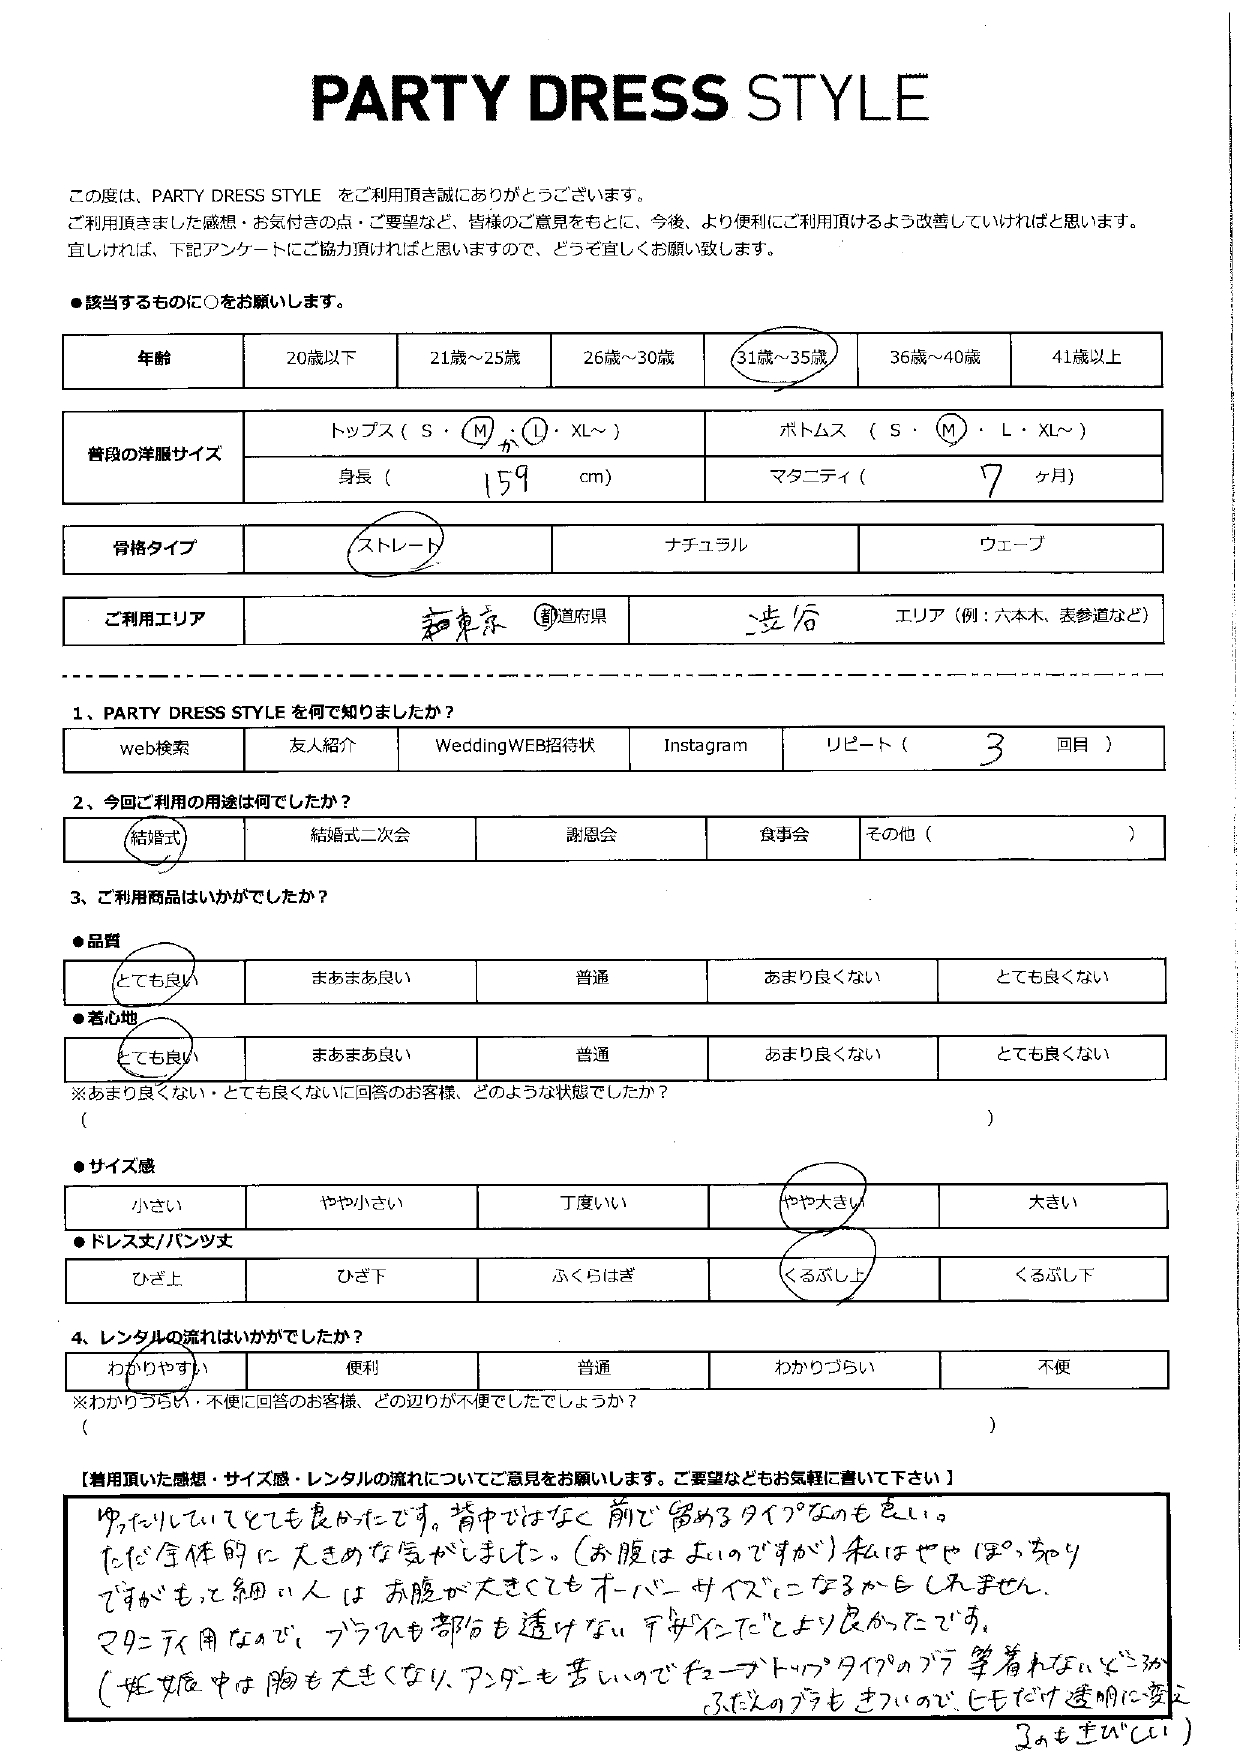 PARTY DRESS STYLE
この度は、PARTY DRESS STYLE をご利用頂き誠にありがとうございます。
ご利用頂きました感想・お気付きの点・ご要望など、皆様のご意見をもとに、今後、より便利にご利用頂けるよう改善していければと思います。
宜しければ、下記アンケートにご協力頂ければと思いますので、どうぞ宜しくお願い致します。
●該当するものに○をお願いします。
年齢 20歳以下 21歳～25歳 26歳～30歳 31歳～35歳 36歳～40歳 41歳以上
普段の洋服サイズ
トップス ( S ・ M ・ L ・ XL～ ) ボトムス ( S ・ M ・ L ・ XL～ )
か
身長 ( 159 cm) マタニティ ( 7 ヶ月)
骨格タイプ ストレート ナチュラル ウェーブ
ご利用エリア 東京 都道府県 渋谷 エリア（例：六本木、表参道など）
1、PARTY DRESS STYLE を何で知りましたか？
web検索 友人紹介 WeddingWEB招待状 Instagram リピート ( 3 回目 )
2、今回ご利用の用途は何でしたか？
結婚式 結婚式二次会 謝恩会 食事会 その他 ( )
3、ご利用商品はいかがでしたか？
●品質
とても良い まあまあ良い 普通 あまり良くない とても良くない
●着心地
とても良い まあまあ良い 普通 あまり良くない とても良くない
※あまり良くない・とても良くないに回答のお客様、どのような状態でしたか？
( )
●サイズ感
小さい やや小さい 丁度いい やや大きい 大きい
●ドレス丈/パンツ丈
ひざ上 ひざ下 ふくらはぎ くるぶし上 くるぶし下
4、レンタルの流れはいかがでしたか？
わかりやすい 便利 普通 わかりづらい 不便
※わかりづらい・不便に回答のお客様、どの辺りが不便でしたでしょうか？
( )
【着用頂いた感想・サイズ感・レンタルの流れについてご意見をお願いします。ご要望などもお気軽に書いて下さい 】
ゆったりしていてとても良かったです。背中ではなく前で留めるタイプなのも良い。
ただ全体的に大きめな気がしました。(お腹はよいのですが)私はややぽっちゃり
ですがもっと細い人はお腹が大きくてもオーバーサイズになるかもしれません。
マタニティ用なので、ブラひも部分も透けないデザインだとより良かったです。
(妊娠中は胸も大きくなり、アンダーも苦しいのでチューブトップタイプのブラ等着れないどころか
ふだんのブラもきついので、ヒモだけ透明に変え
るのもきびしい)